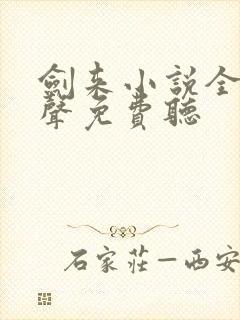 劍来小說全
聲免費聽
石家莊—西安